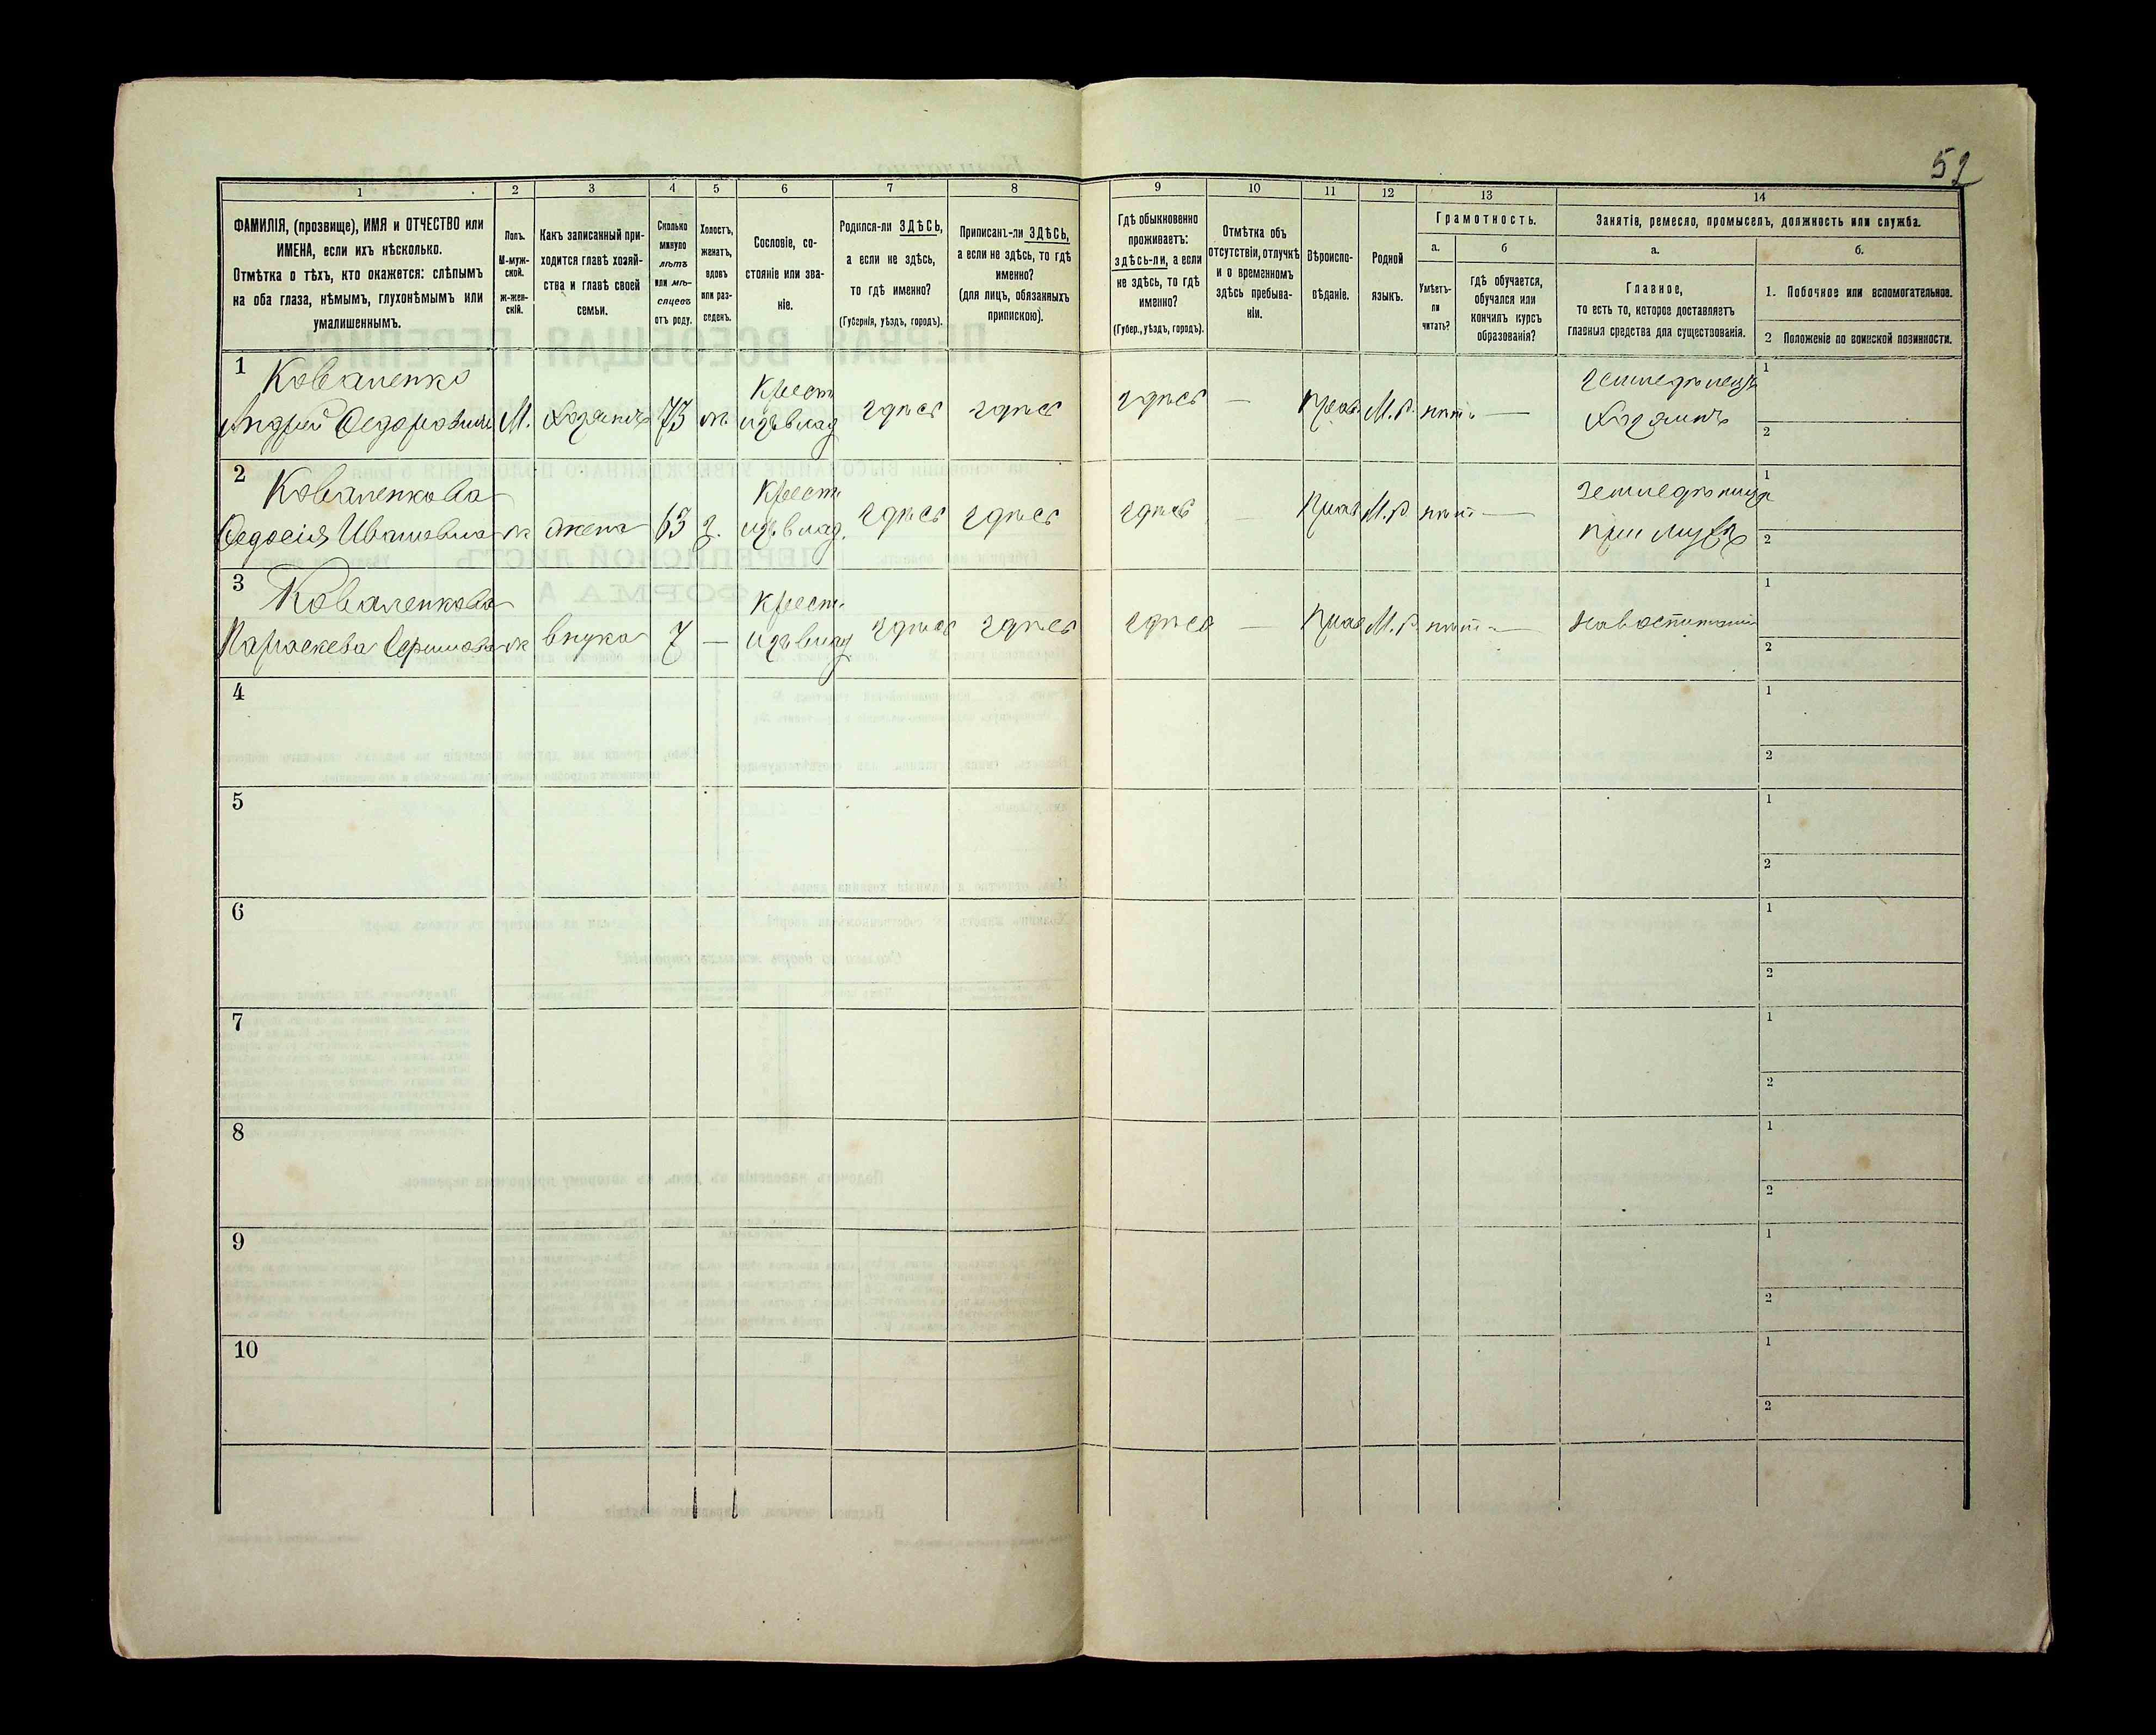 52
1 2 3 4 5 6 7 8 9 10 11 12 13 14
ФАМИЛІЯ, (прозвище), ИМЯ и ОТЧЕСТВО или
ИМЕНА, если ихъ нѣсколько.
Отмѣтка о тѣхъ, кто окажется: слѣпымъ
на оба глаза, нѣмымъ, глухонѣмымъ или
умалишеннымъ.
Полъ.
М-муж-
ской.
ж-жен-
скій.
Какъ записанный при-
ходится главѣ хозяй-
ства и главѣ своей
семьи.
Сколько
минуло
лѣтъ
или мѣ-
сяцевъ
отъ роду.
Холостъ,
женатъ,
вдовъ
или раз-
веденъ.
Сословіе, со-
стояніе или зва-
ніе.
Родился-ли ЗДѢСЬ,
а если не здѣсь,
то гдѣ именно?
(Губернія, уѣздъ, городъ).
Приписанъ-ли ЗДѢСЬ,
а если не здѣсь, то гдѣ
именно?
(для лицъ, обязанныхъ
припискою).
Гдѣ обыкновенно
проживаетъ:
здѣсь-ли, а если
не здѣсь, то гдѣ
именно?
(Губер., уѣздъ, городъ).
Отмѣтка объ
отсутствіи, отлучкѣ
и о временномъ
здѣсь пребыва-
ніи.
Вѣроиспо-
вѣданіе.
Родной
языкъ.
Грамотность.
а.
Умѣетъ-
ли
читать?
б
гдѣ обучается,
обучался или
кончилъ курсъ
образованія?
Занятія, ремесло, промыселъ, должность или служба.
а.
Главное,
то есть то, которое доставляетъ
главныя средства для существованія.
б.
1. Побочное или вспомогательное.
2 Положеніе по воинской повинности.
1 Коваленко Крест земледѣлецъ 1
Андрей Ѳедоровичъ М. Хозяинъ 73 ж. изъ влад здѣсь здѣсь здѣсь — Прав. М.Р. нѣтъ — Хозяинъ 2
2 Коваленкова Крест 1
Ѳедосія Ивановна ж жена 63 з. изъ влад. здѣсь здѣсь здѣсь — Прав М.Р. нѣтъ — при мужѣ 2
3 Коваленкова Крест. 1
Параскева ж внука 7 — изъ влад здѣсь здѣсь здѣсь — Прав М.Р. нѣтъ — 2
4 1
2
5 1
2
6 1
2
7 1
2
8 1
2
9 1
2
10 1
2